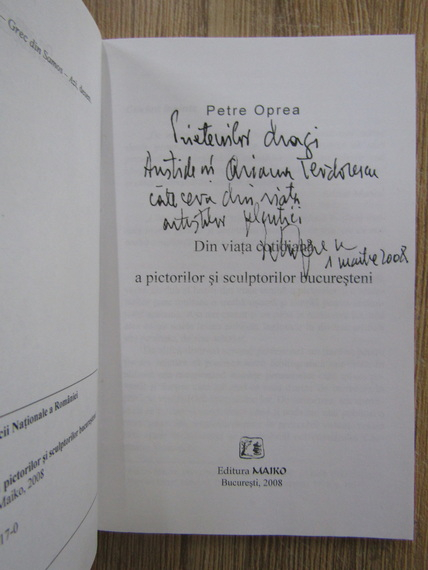 Grec din Samos –
cii Naționale a României
pictorilor și sculptorilor bucureșteni
Maiko, 2008
17-0
Petre Oprea
Prietenilor dragi
Aristide și Ariana Teodorescu
câte ceva din viața
artiștilor plastici
1 martie 2008
Din viața cotidiană
a pictorilor și sculptorilor bucureșteni
Editura MAIKO
București, 2008